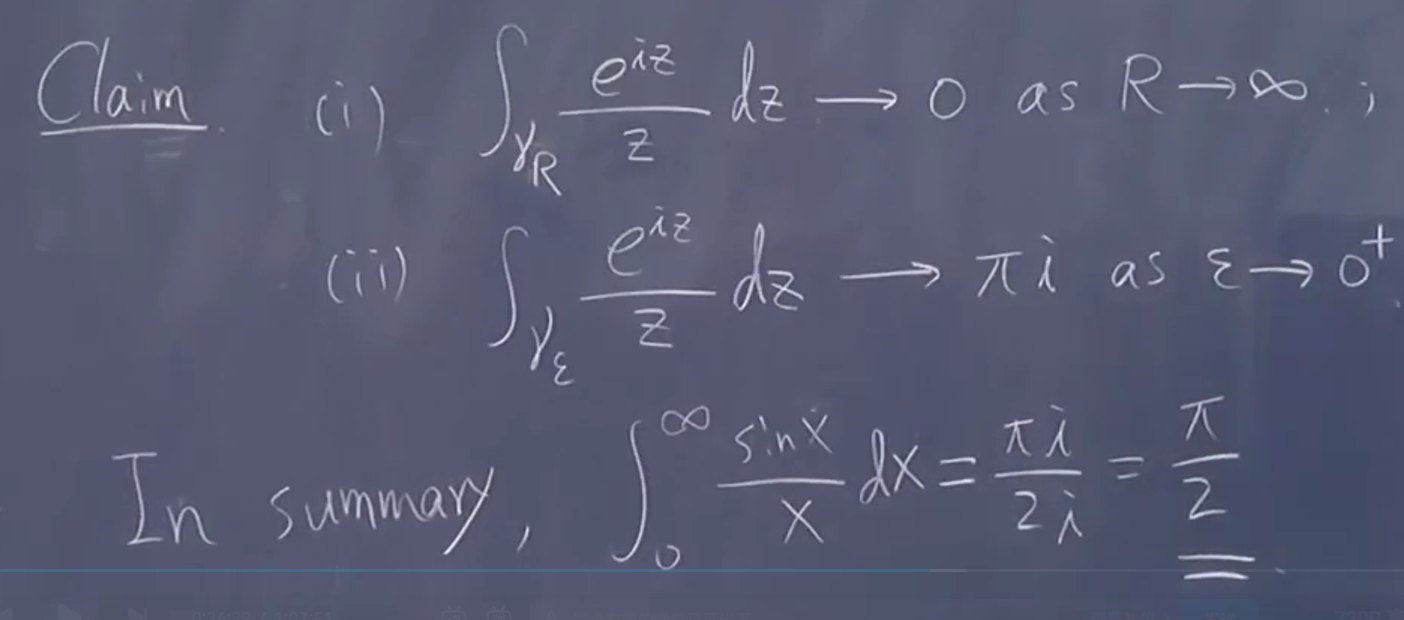 Claim. (i) ∫_{γ_R} e^{iz}/z dz → 0 as R → ∞. ;
(ii) ∫_{γ_ε} e^{iz}/z dz → πi as ε → 0⁺.
In summary, ∫_0^∞ sin x/x dx = πi/2i = π/2.